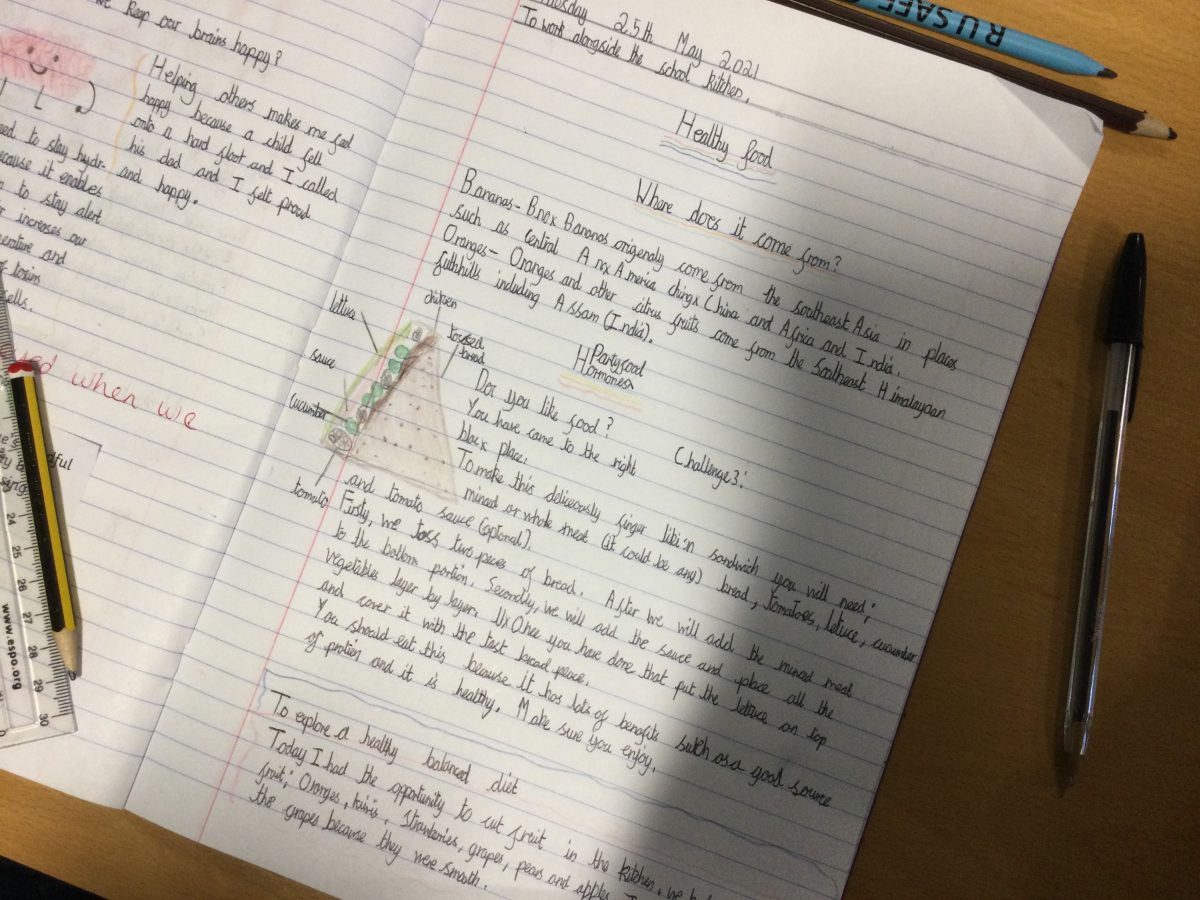 we keep our brains happy?
Helping others makes me feel
happy because a child fell
onto a hard floot and I called
his dad and I felt proud
and happy.
need to stay hydr-
because it enables
to stay alert
increases our
and
toxins
cells.
when we
24
25
26
27
28
29
30
www.espo.org
R U SAFE
25th May 2021
To work alongside the school kitchen.
Healthy food
Where does it come from?
Bananas- Bnex Bananas origenaly come from the southeast Asia in places
such as central A nex America chingx China and Africa and India.
Oranges- Oranges and other citrus fruits come from the Southeast Himalayan
fathhills including Assam (India).
lettuce
chiken
sauce
bread
cucumber
tomato
Partyfood
Hormonesx
Dor you like food?
You have came to the right
place.
Challenge3:
To make this deliceously finger libi'n sandwich you will need:
minced or whole meat (it could be any) bread, tomatoses, lettuce, cucumber
and tomato sauce (optonal).
Firstly, we toss two peces of bread. After we will add the minced meat
to the bottom portion. Secondly, we will add the sauce and place all the
vegetables layer by layer. Once you have done that put the lettuce on top
and cover it with the last bread peace.
You should eat this because it has lots of benefits such as a good source
of protien and it is healthy. Make sure you enjoy.
To explore a healthy balanced diet
Today I had the opportunity to cut fruit in the kitchen. we
fruit: Oranges, kiwis, strawberries, grapes, pears and apples.
the grapes because they were smooth.